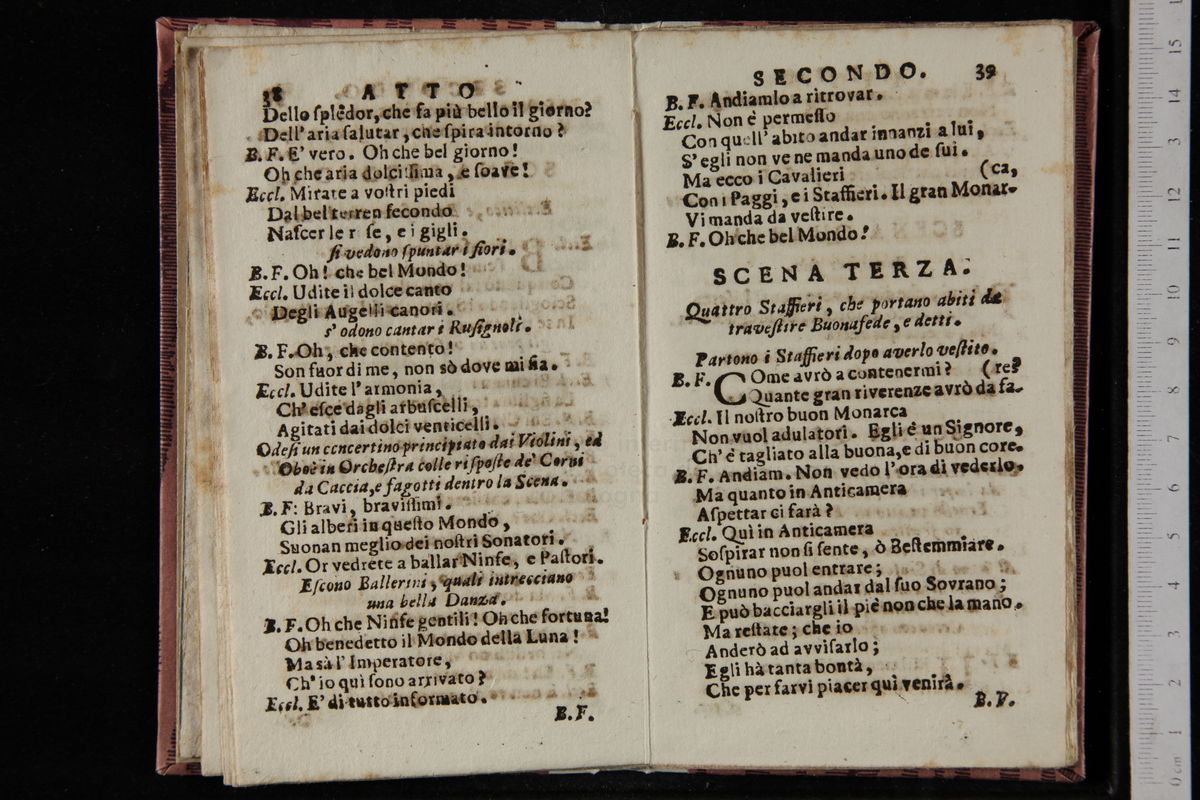 38 ATTO
Dello ſplēdor, che fa più bello il giorno?
Dell' aria ſalutar, che ſpira intorno?
B. F. E' vero. Oh che bel giorno!
Oh che aria dolciſſima, e ſoave!
Eccl. Mirate a voſtri piedi
Dal bel terren fecondo
Naſcer le r ſe, e i gigli.
ſi vedono ſpuntar i fiori.
B. F. Oh! che bel Mondo!
Eccl. Udite il dolce canto
Degli Augelli canori.
s' odono cantar i Ruſignoli.
B. F. Oh, che contento!
Son fuor di me, non sò dove mi ſia.
Eccl. Udite l' armonia,
Ch' eſce dagli arbuſcelli,
Agitati dai dolci venticelli.
Odeſi un concertino principiato dai Violini, ed
Oboè in Orcheſtra colle riſpoſte de' Corni
da Caccia, e fagotti dentro la Scena.
B. F: Bravi, braviſſimi.
Gli alberi in queſto Mondo,
Suonan meglio dei noſtri Sonatori.
Eccl. Or vedrete a ballar Ninfe, e Paſtori.
Eſcono Ballerini, quali intrecciano
una bella Danza.
B. F. Oh che Ninfe gentili! Oh che fortuna!
Oh benedetto il Mondo della Luna!
Ma sà l' Imperatore,
Ch' io quì ſono arrivato?
Eccl. E' di tutto informato.
B. F.
SECONDO. 39
B. F. Andiamlo a ritrovar.
Eccl. Non è permeſſo
Con quell' abito andar innanzi a lui,
S' egli non ve ne manda uno de ſui.
Ma ecco i Cavalieri (ca,
Con i Paggi, e i Staffieri. Il gran Monar-
Vi manda da veſtire.
B. F. Oh che bel Mondo!
SCENA TERZA.
Quattro Staffieri, che portano abiti da
traveſtire Buonafede, e detti.
Partono i Staffieri dopo averlo veſtito.
B. F. COme avrò a contenermi? (re?
Quante gran riverenze avrò da fa-
Eccl. Il noſtro buon Monarca
Non vuol adulatori. Egli è un Signore,
Ch' è tagliato alla buona, e di buon core.
B. F. Andiam. Non vedo l' ora di vederlo.
Ma quanto in Anticamera
Aſpettar ci farà?
Eccl. Quì in Anticamera
Soſpirar non ſi ſente, ò Beſtemmiare.
Ognuno puol entrare;
Ognuno puol andar dal ſuo Sovrano;
E può bacciargli il piè non che la mano.
Ma reſtate; che io
Anderò ad avviſarlo;
Egli hà tanta bontà,
Che per farvi piacer quì venirà.
B. F.